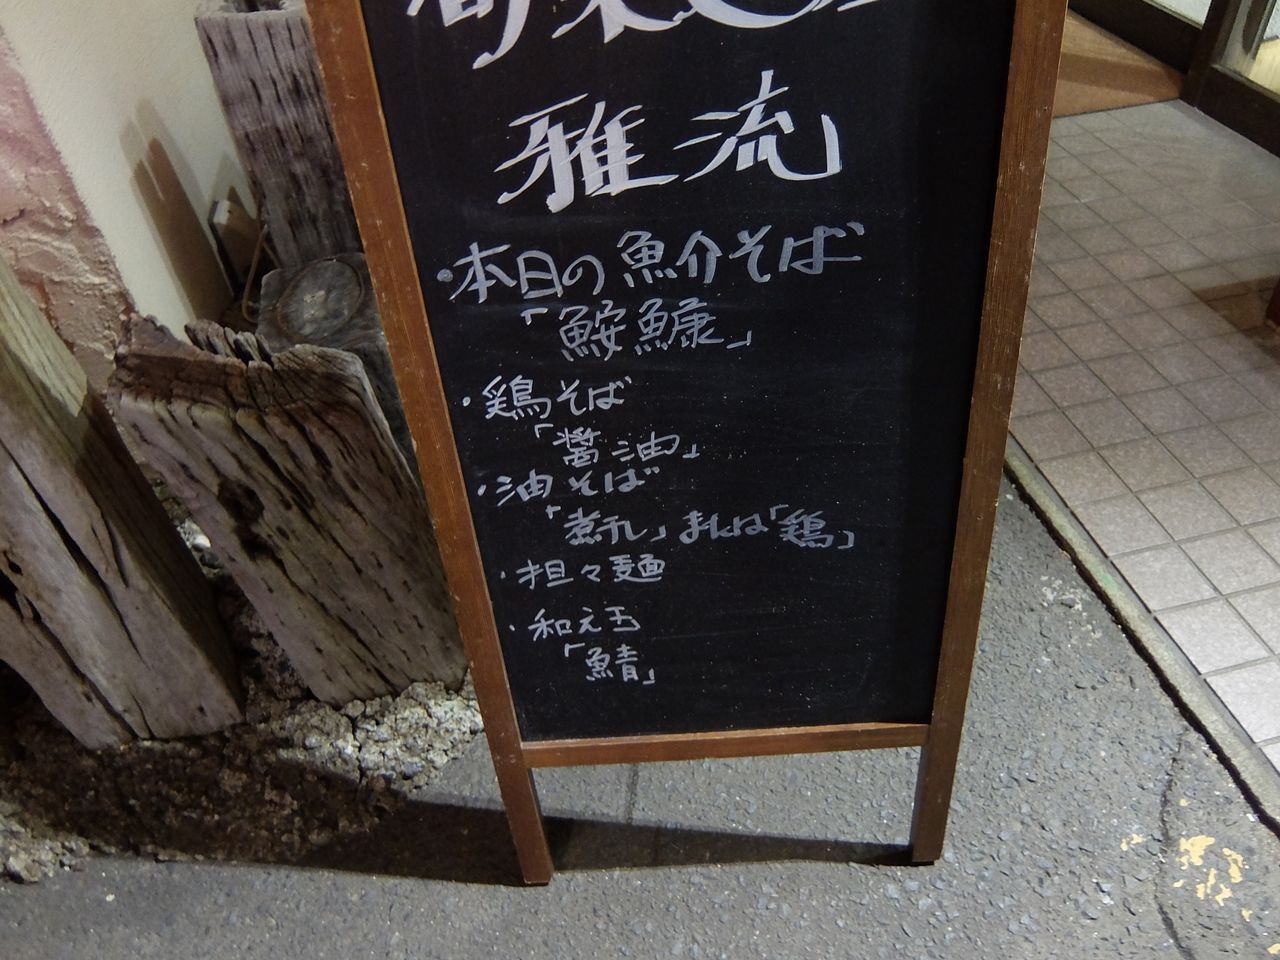 旬菜麺屋
雅流
・本日の魚介そば
「鮟鱇」
・鶏そば
「醤油」
・油そば
「煮干し」または「鶏」
・担々麺
・和え玉
「鯖」